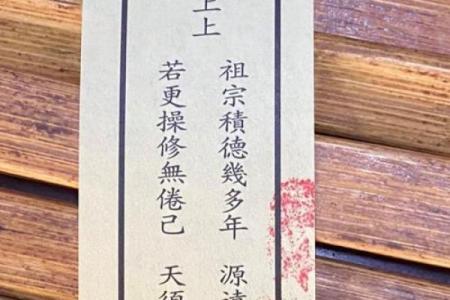 上上
祖宗積德幾多年 源遠
若更操修無倦己 天須